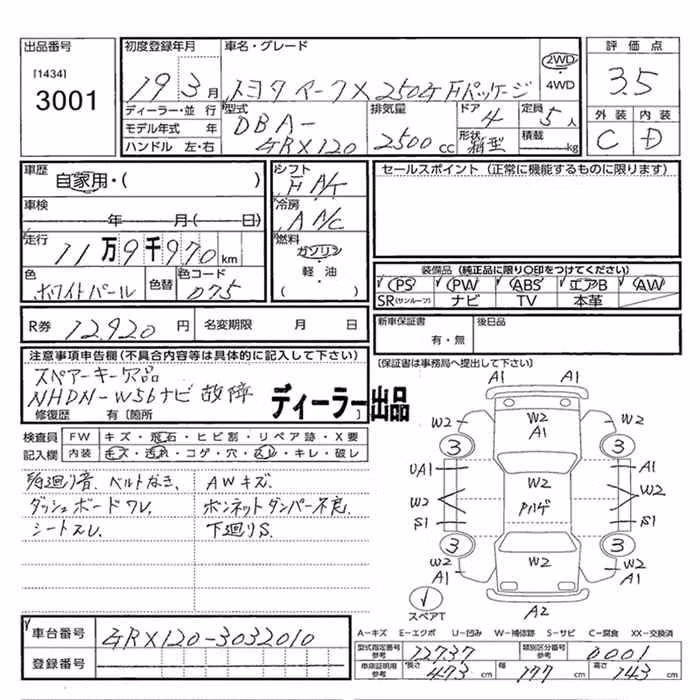 出品番号
[1434]
3001
初度登録年月
19年 3月
車名・グレード
トヨタ マークX 250G Fパッケージ
2WD
・
4WD
評価点
3.5
外装 内装
C D
ディーラー・並行
モデル年式 年
ハンドル 左・右
型式
DBA-
GRX120
排気量
2500cc
ドア
4
定員
5人
形状
箱型
積載
kg
車歴
自家用・( )
車検
年 月( 日)
走行
11万9千970km
色
ホワイトパール
色替
色コード
075
シフト
F A/T
冷房
A A/C
燃料
ガソリン
・
軽・油
( )
セールスポイント (正常に機能するものに限ります)
装備品 (純正品に限り〇印をつけてください)
PS PW ABS エアB AW
SR(サンルーフ) ナビ TV 本革
R券 12,920円
名変期限 月 日
新車保証書
有・無
後日品
[保証書は事務局へ提出して下さい]
注意事項申告欄(不具合内容等は具体的に記入して下さい)
スペアーキー欠品
NHDN-W56ナビ故障
修復歴 有〔箇所 〕
ディーラー出品
検査員
記入欄
FW キズ・飛石・ヒビ割・リペア跡・X要
内装 キズ・汚れ・コゲ・穴・スレ・キレ・破レ
足廻り音、ベルトなき、 AWキズ.
ダッシュボードワレ、 ボンネットダンパー不良.
シートスレ、 下廻りS.
A1 A1
W2 W2
A1 A1
W2
A1
3 3
UA1 A1
W2 W2
S1 S1
Pハゲ
3 3
W2 W2
A1 A1
W2
スペアT
A2
車台番号 GRX120-3032010
登録番号
A-キズ E-エクボ U-凹み W-補修跡 S-サビ C-腐食 XX-交換済
型式指定番号
参考
12737
類別区分番号
参考
0001
車庫証明用
参考
長さ 473cm 幅 177cm 高さ 143cm